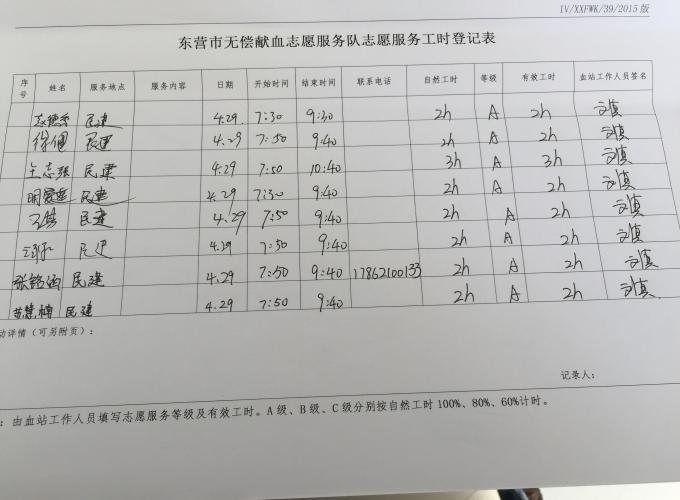 IV/XXFWK/39/2015版
东营市无偿献血志愿服务队志愿服务工时登记表
序号 姓名 服务地点 服务内容 日期 开始时间 结束时间 联系电话 自然工时 等级 有效工时 血站工作人员签名
民建 4.29 7:30 9:30 2h A 2h
徐健 民建 4.29 7:50 9:40 2h A 2h
王志强 民建 4.29 7:50 10:40 3h A 3h
民建 4.29 7:30 9:40 2h A 2h
民建 4.29 7:50 9:40 2h A 2h
民建 4.29 7:50 9:40 2h A 2h
张铭涵 民建 4.29 7:50 9:40 17862100133 2h A 2h
黄慧楠 民建 4.29 7:50 9:40 2h A 2h
动详情（可另附页）：
记录人：
：由血站工作人员填写志愿服务等级及有效工时。A级、B级、C级分别按自然工时100%、80%、60%计时。